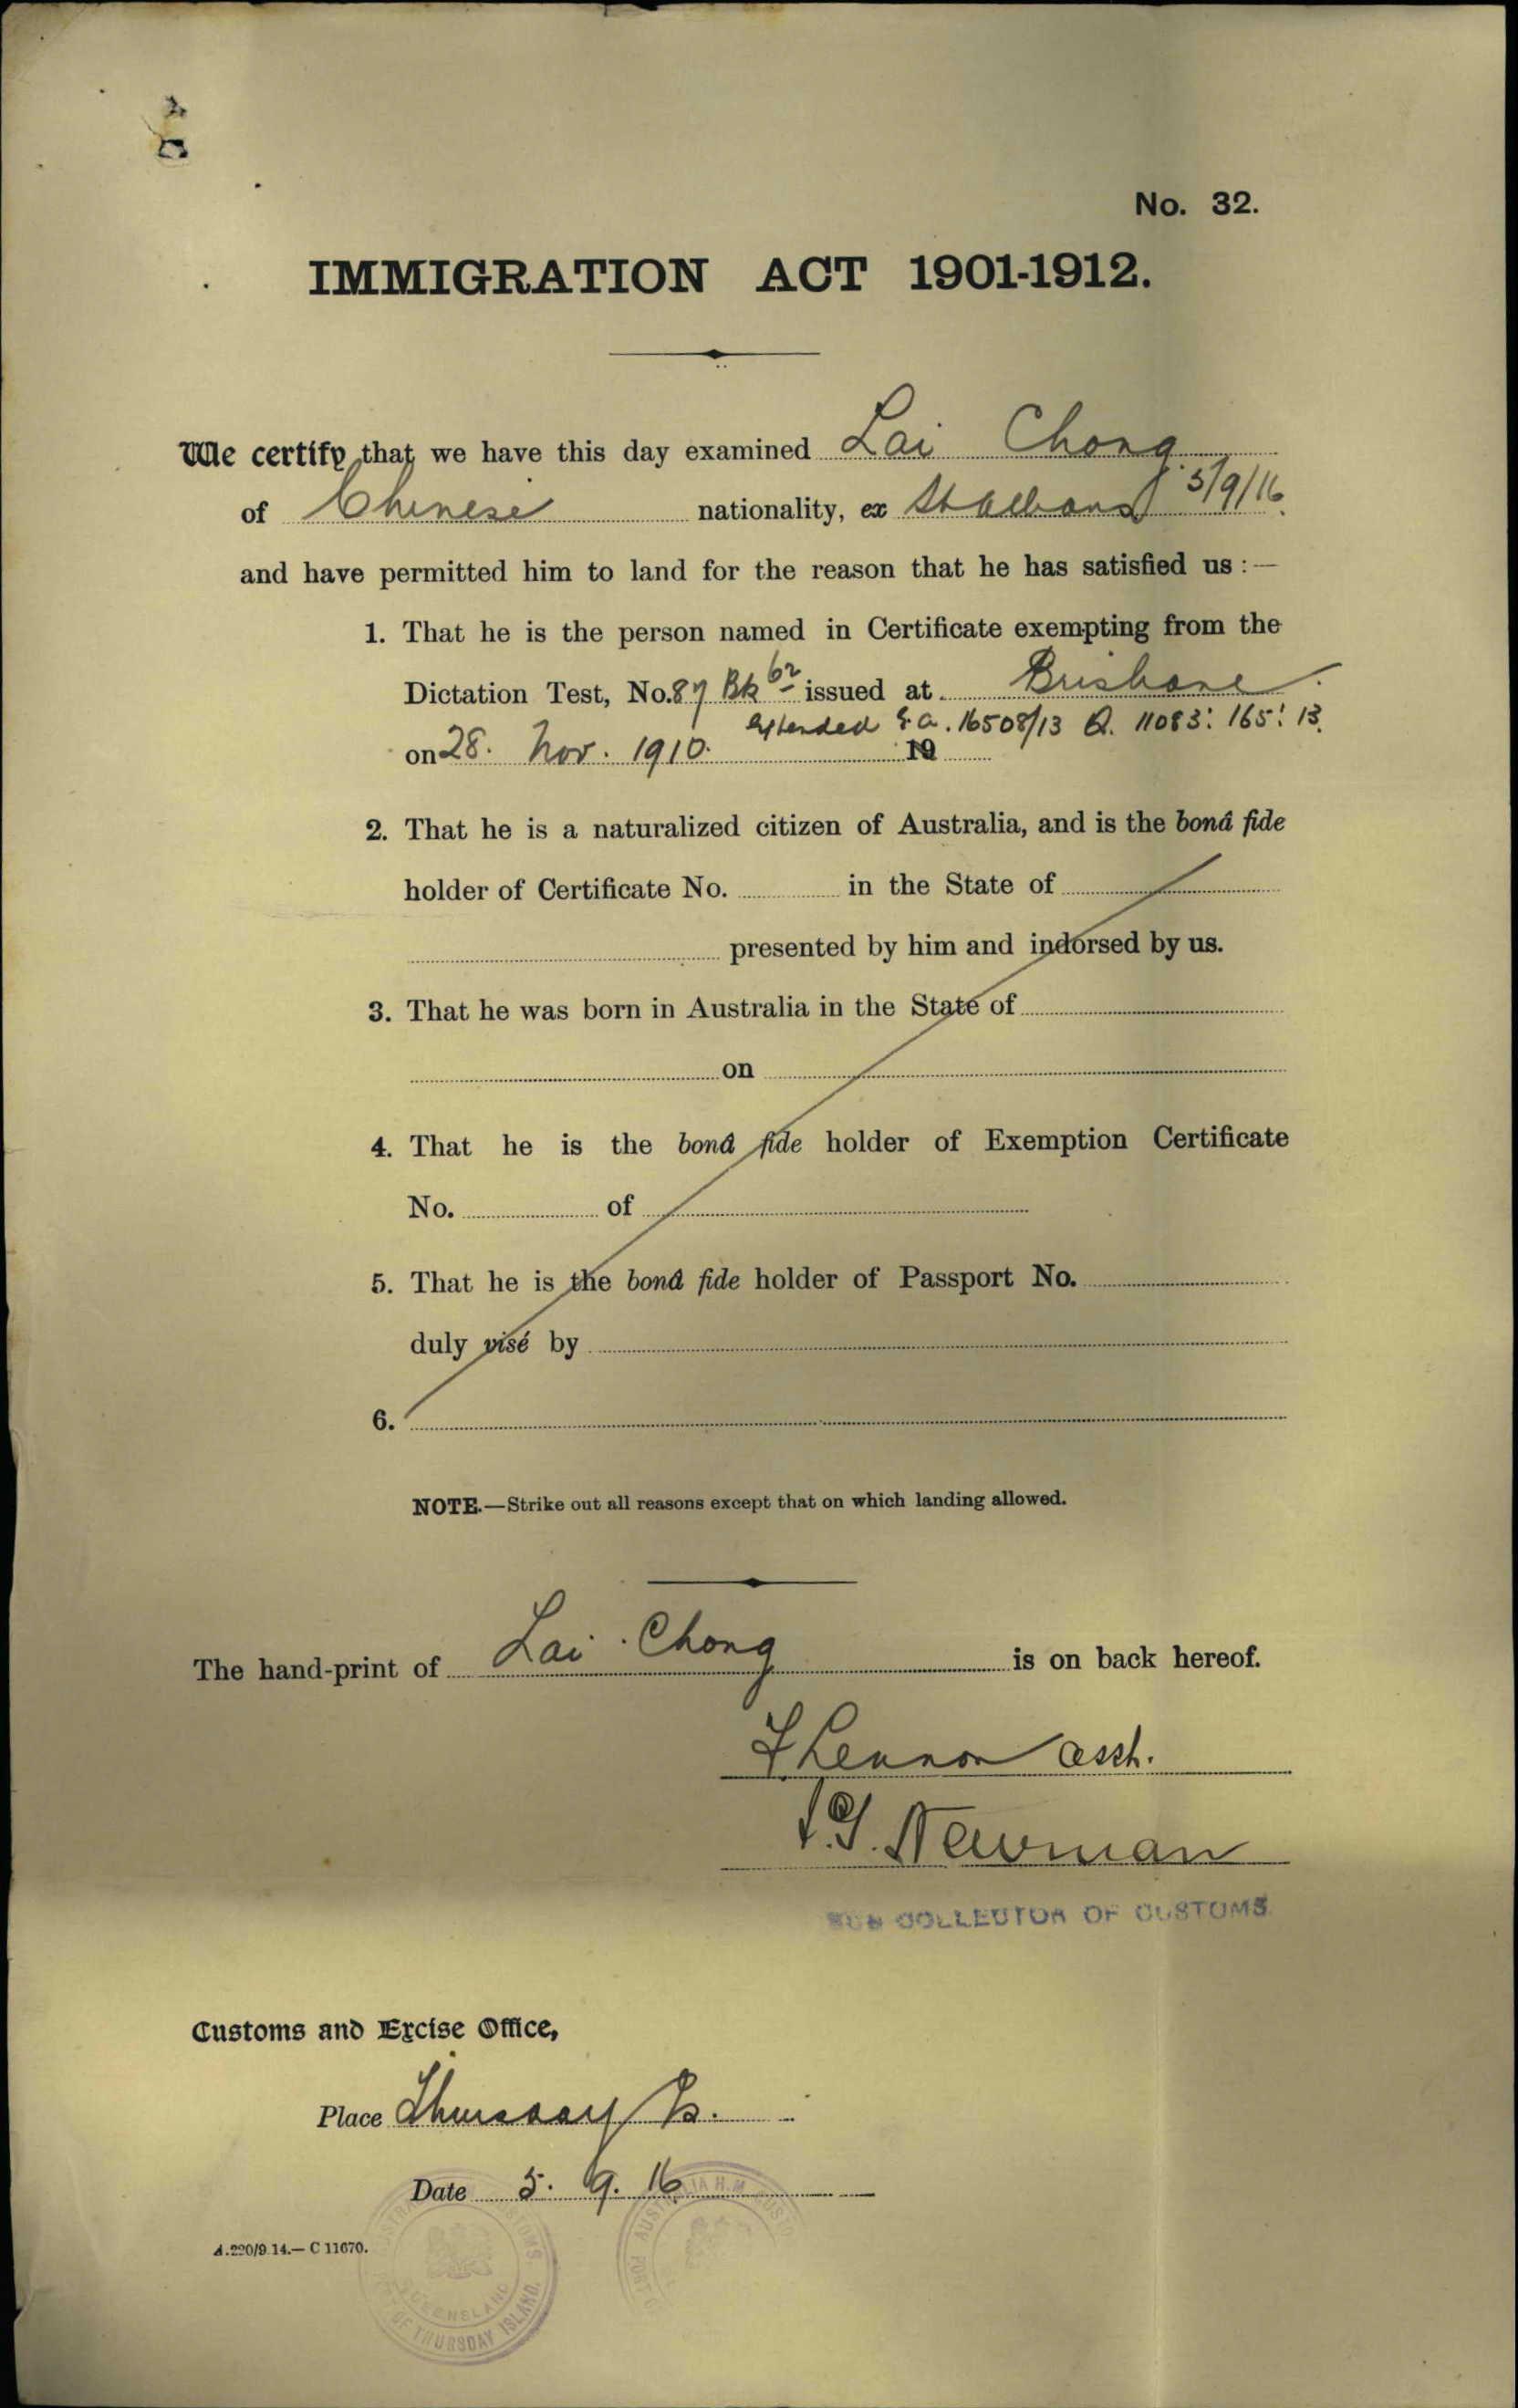 No. 32.
IMMIGRATION ACT 1901-1912.
We certify that we have this day examined Lai Chong
of Chinese nationality, ex St Albans 5/9/16
and have permitted him to land for the reason that he has satisfied us :—
1. That he is the person named in Certificate exempting from the
Dictation Test, No. 87 Bk 62 issued at Brisbane.
extended E.A. 16508/13 Q. 11083: 165: 13.
on 28. Nov. 1910. 19
2. That he is a naturalized citizen of Australia, and is the bonâ fide
holder of Certificate No. in the State of
presented by him and indorsed by us.
3. That he was born in Australia in the State of
on
4. That he is the bonâ fide holder of Exemption Certificate
No. of
5. That he is the bonâ fide holder of Passport No.
duly visé by
6.
NOTE.—Strike out all reasons except that on which landing allowed.
The hand-print of Lai Chong is on back hereof.
Lennon
Newman
SUB COLLECTOR OF CUSTOMS
Customs and Excise Office,
Place Thursday Is.
Date 5. 9. 16
A.220/9.14.—C 11670.
QUEENSLAND
PORT OF THURSDAY ISLAND.
AUSTRALIA H.M. CUSTO
PORT O